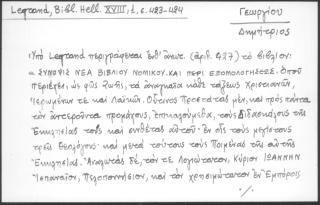 Legrand, Bibl. Hell. XVIII, 1, σ. 483-484
Γεωργίου
Δημήτριος
Ὑπὸ Legrand περιγράφεται ἐνθ' ἀνωτ. (ἀριθ. 497) τὸ βιβλίον:
« ΣΥΝΟΨΙΣ ΝΕΑ ΒΙΒΛΙΟΥ ΝΟΜΙΚΟΥ. ΚΑΙ ΠΕΡΙ ΕΞΟΜΟΛΟΓΗΣΕΩΣ. Ὁποῦ
περιέχει, τὰ ἀναγκαῖα κάθε τάξεως Χριστιανῶν,
Ἱερωμένων τὲ καὶ Λαϊκῶν. Οὗτινος Προστάτας μὲν, καὶ πρὸς πάντα
τὸν ἀντεροῦντα προμάχους, ἐπιγραφόμεθα, τοὺς Διδασκάλους τῆς
Ἐκκλησίας τοὺς καὶ συνθέτας αὐτοῦ· ἐν οἷς τοὺς μεγίστους
τρεῖς Θεολόγους· καὶ μετὰ τούτους τοὺς Ποιμένας τῆς αὐτῆς
Ἐκκλησίας. Ἀναλωτὰς δὲ, τόν τε Λογιώτατον, Κύριον ΙΩΑΝΝΗΝ
Πελοπονήσιον, καὶ τὸν χρησιμώτατον ἐν Ἐμπόροις
·/.